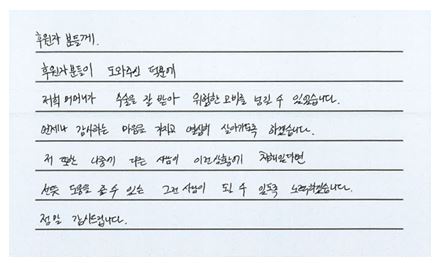 후원자 분들께.
후원자분들이 도와주신 덕분에
저희 어머니가 수술을 잘 받아 위험한 고비를 넘길 수 있었습니다.
언제나 감사하는 마음을 가지고 열심히 살아가도록 하겠습니다.
저 또한 나중에 다른 사람이 이런 상황에 처해있다면
선뜻 도움을 줄 수 있는 그런 사람이 될 수 있도록 노력하겠습니다.
정말 감사드립니다.